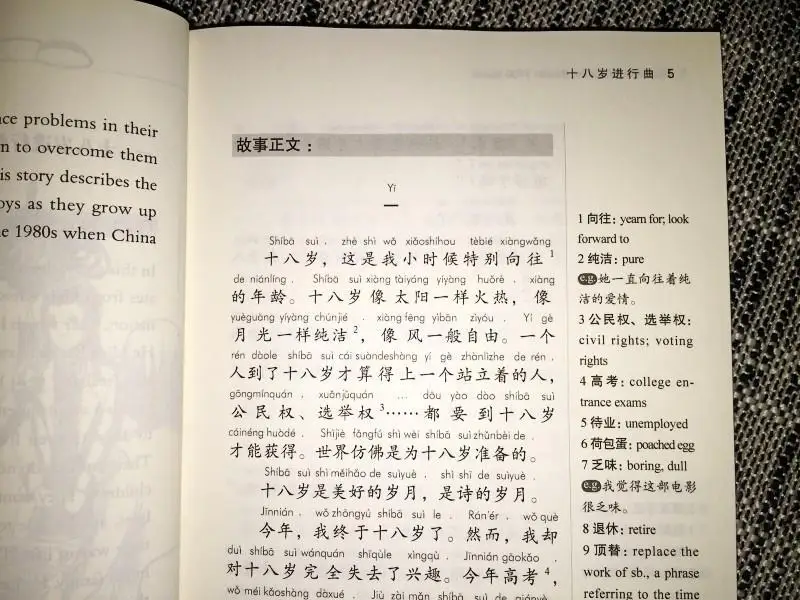 ce problems in their
n to overcome them
is story describes the
oys as they grow up
e 1980s when China
十八岁进行曲 5
故事正文：
Yī
一
Shíbā suì , zhè shì wǒ xiǎoshíhou tèbié xiàngwǎng
十八岁，这是我小时候特别向往1
de niánlíng. Shíbā suì xiàng tàiyáng yíyàng huǒrè , xiàng
的年龄。十八岁像太阳一样火热，像
yuèguāng yíyàng chúnjié , xiàng fēng yìbān zìyóu. Yí gè
月光一样纯洁2，像风一般自由。一个
rén dàole shíbā suì cái suàndeshàng yí gè zhànlìzhe de rén ,
人到了十八岁才算得上一个站立着的人，
gōngmínquán 、 xuǎnjǔquán … dōu yào dào shíbā suì
公民权、选举权3……都要到十八岁
cáinéng huòdé . Shìjiè fǎngfú shì wèi shíbā suì zhǔnbèi de .
才能获得。世界仿佛是为十八岁准备的。
Shíbā suì shì měihǎo de suìyuè , shì shī de suìyuè .
十八岁是美好的岁月，是诗的岁月。
Jīnnián , wǒ zhōngyú shíbā suì le . Rán'ér , wǒ què
今年，我终于十八岁了。然而，我却
duì shíbā suì wánquán shīqùle xìngqù . Jīnnián gāokǎo ,
对十八岁完全失去了兴趣。今年高考4，
wǒ méi kǎoshàng dàxué . Jiù zài mǎn shíbā suì de qiányè
1 向往：yearn for; look
forward to
2 纯洁：pure
e.g 她一直向往着纯
洁的爱情。
3 公民权、选举权：
civil rights; voting
rights
4 高考：college en-
trance exams
5 待业：unemployed
6 荷包蛋：poached egg
7 乏味：boring, dull
e.g 我觉得这部电影
很乏味。
8 退休：retire
9 顶替：replace the
work of sb., a phrase
referring to the time